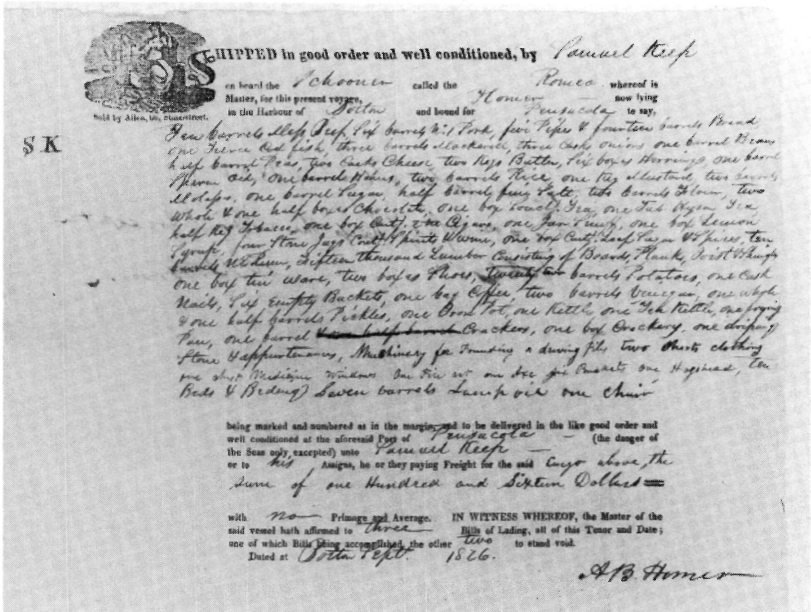 SHIPPED in good order and well conditioned, by Samuel Keep
on board the Schooner called the Romeo whereof is
Master, for this present voyage, Homer now lying
in the Harbour of Boston and bound for Pensacola to say,
Sold by Allen, State-street.
S K
Ten barrels Mess Beef, Six barrels No 1 Pork, five Pipes & fourteen barrels Bread
one Tierce Cod fish, three barrels Mackerel, three Casks onions one barrel Beans
half barrel Peas, two Casks Cheese, two Kegs Butter, Six boxes Herrings, one barrel
Sperm Oil, one barrel Hams, two barrels Rice, one Keg Mustard, two barrels
Molass, one barrel Sugar, half barrel fine Salt, two barrels Flour, two
whole & one half boxes Chocolate, one box Tea, one Tub Hyson Tea
half Keg Tobacco, one box Cigars, one Jar, one box Lemon
Syrup, four Stone Jugs Spirits, one box Loaf Sugar & Spices, ten
barrels, Sixteen thousand Lumber Consisting of Boards, Plank, Joist & Shingles
one box tin ware, two boxes Shoes, twenty two barrels Potatoes, one Cask
Nails, Six Empty Buckets, one bag Coffee, two barrels Vinegar, one whole
& one half barrels Pickles, one Iron Pot, one Kettle, one Tea Kettle, one frying
Pan, one barrel Crackers, one box Crockery, one
Stove & appurtenances, Machinery for & driving piles two Chests clothing
one chest Medicine Windows one one Hogshead, ten
Beds & Beding Seven barrels Lamp oil one chair
being marked and numbered as in the margin, and to be delivered in the like good order and
well conditioned at the aforesaid Port of Pensacola (the danger of
the Seas only excepted) unto Samuel Keep
or to his Assigns, he or they paying Freight for the said Cargo above, the
Sum of one Hundred and Sixteen Dollars
with no Primage and Average. IN WITNESS WHEREOF, the Master of the
said vessel hath affirmed to three Bills of Lading, all of this Tenor and Date;
one of which Bills being accomplished, the other two to stand void.
Dated at Boston Sept. 1826.
A B Homer